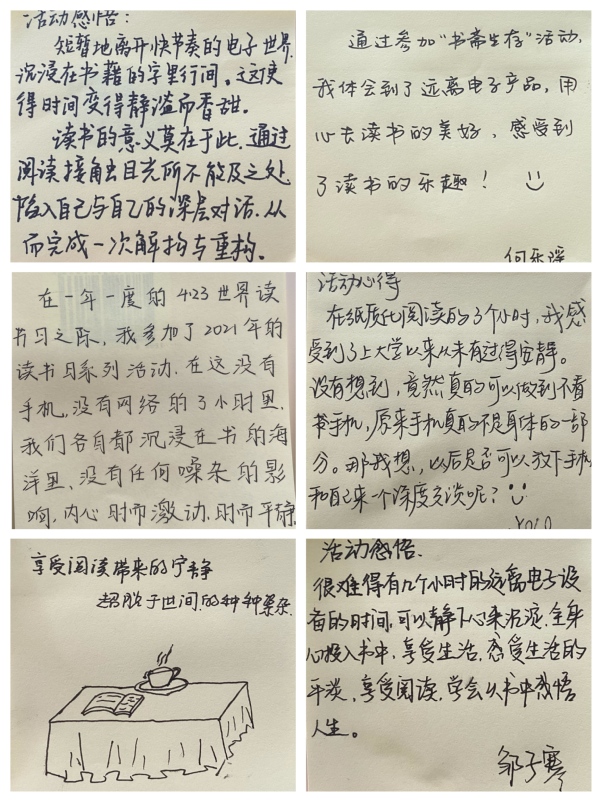 活动感悟：
短暂地离开快节奏的电子世界，
沉浸在书籍的字里行间。这使
得时间变得静谧而香甜。
读书的意义莫在于此，通过
阅读接触目光所不能及之处
陷入自己与自己的深层对话，从
而完成一次解构与重构。
通过参加“书斋生存”活动，
我体会到了远离电子产品，用
心去读书的美好，感受到
了读书的乐趣！
何乐瑶
在一年一度的4.23世界读
书日之际，我参加了2021年的
读书日系列活动，在这没有
手机，没有网络的3小时里，
我们各自都沉浸在书的海
洋里，没有任何噪杂的影
响，内心时而激动，时而平静
活动心得
在纸质化阅读的3个小时，我感
受到了上大学以来从未有过得安静。
没有想到，竟然真的可以做到不看
手机，原来手机真的不是身体的一部
分。那我想，以后是否可以放下手机
和自己来一个深度交谈呢？
享受阅读带来的宁静
超脱于世间的种种繁杂
活动感悟.
很难得有几个小时的远离电子设
备的时间，可以静下心来沉淀，全身
心投入书中，享受生活，感受生活的
平淡，享受阅读，学会从书中感悟
人生。
邹子寒